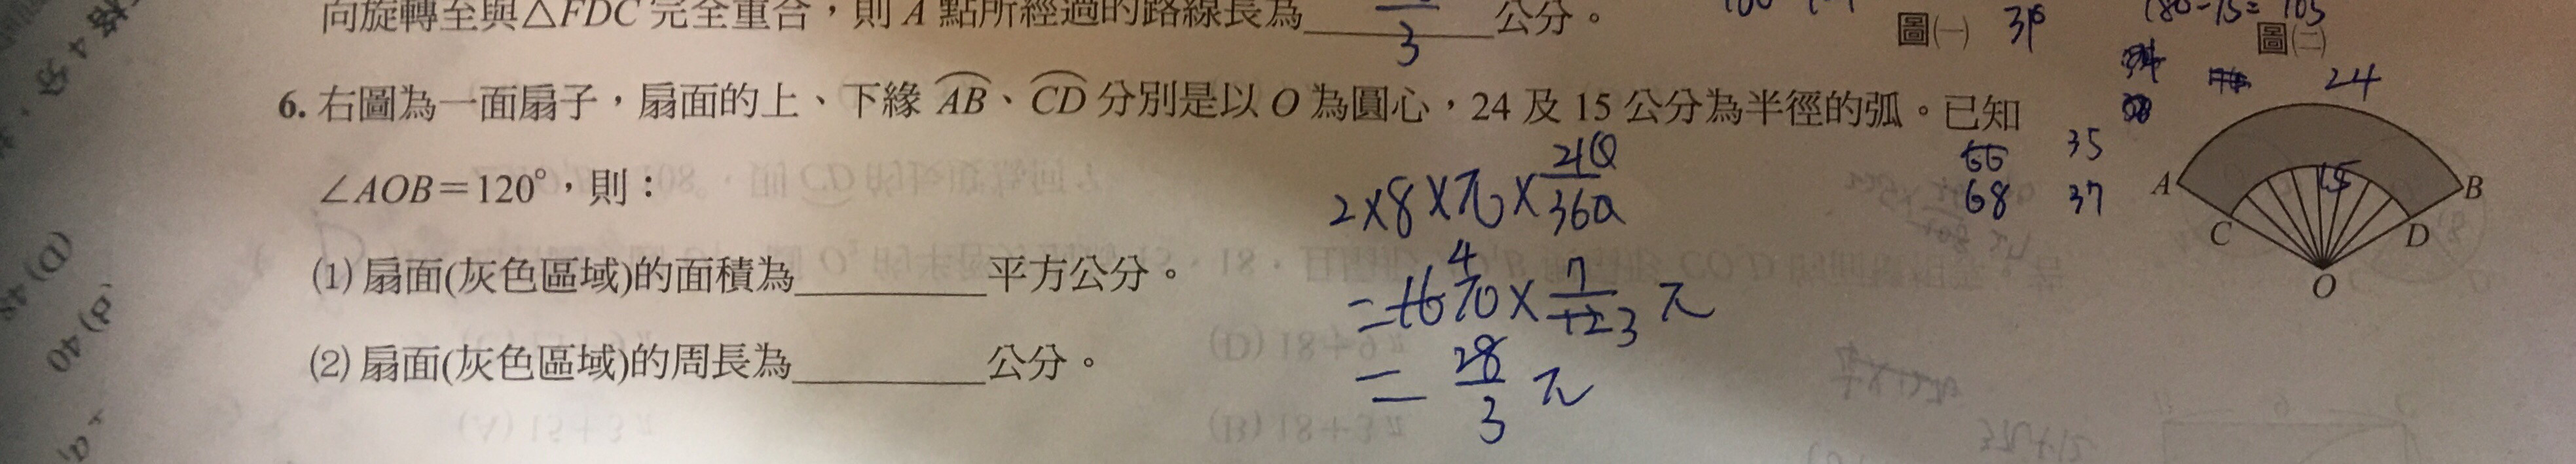 向旋轉至與△FDC 完全重合,則 A 點所經過的路線長為 3 公分。
圖㈠ 圖㈡
180-15=105
6. 右圖為一面扇子,扇面的上、下緣 AB、CD 分別是以 O 為圓心,24 及 15 公分為半徑的弧。已知
∠AOB=120°,則:
⑴ 扇面(灰色區域)的面積為______平方公分。
⑵ 扇面(灰色區域)的周長為______公分。
2×8×π×210/360
=16π×7/12 4 3 π
=28/3 π
35
68 37
24
15
A B
C D
O
(D) 18+6π
(A) 15+3π (B) 18+3π
40